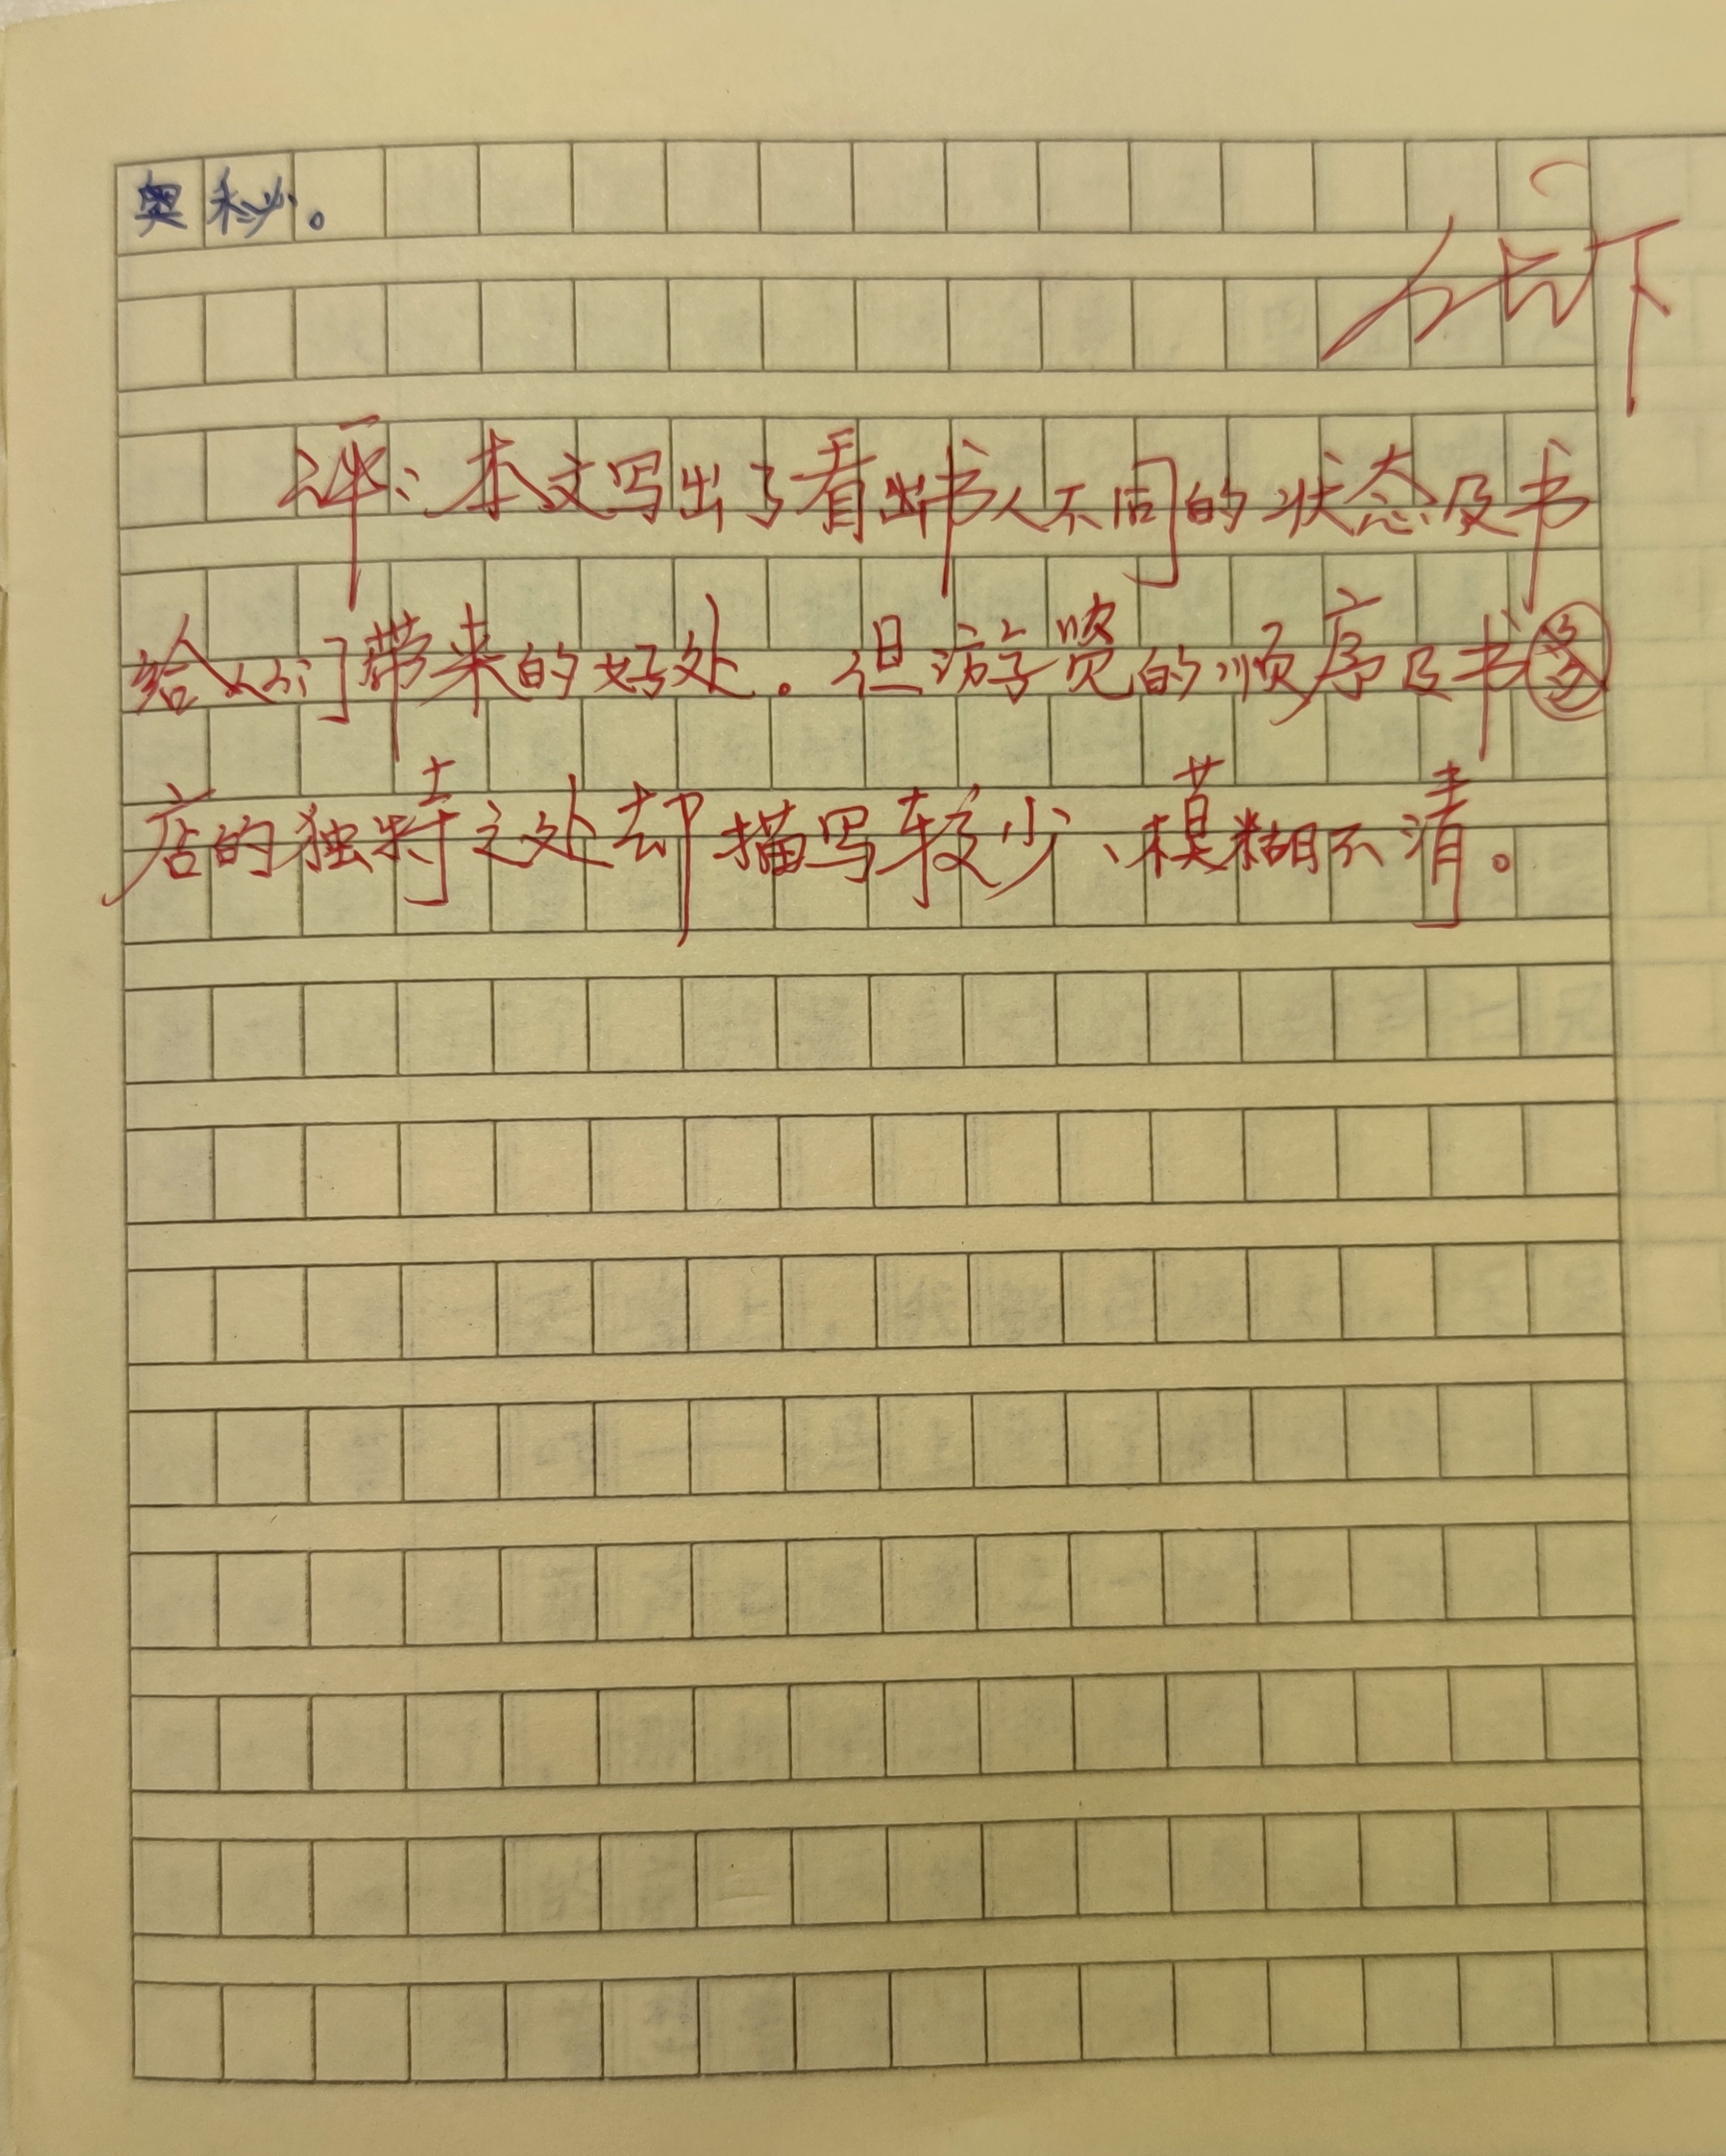 奥秘。
评：本文写出了看书人不同的状态及书
给人们带来的好处。但游览的顺序及书
店的独特之处却描写较少、模糊不清。